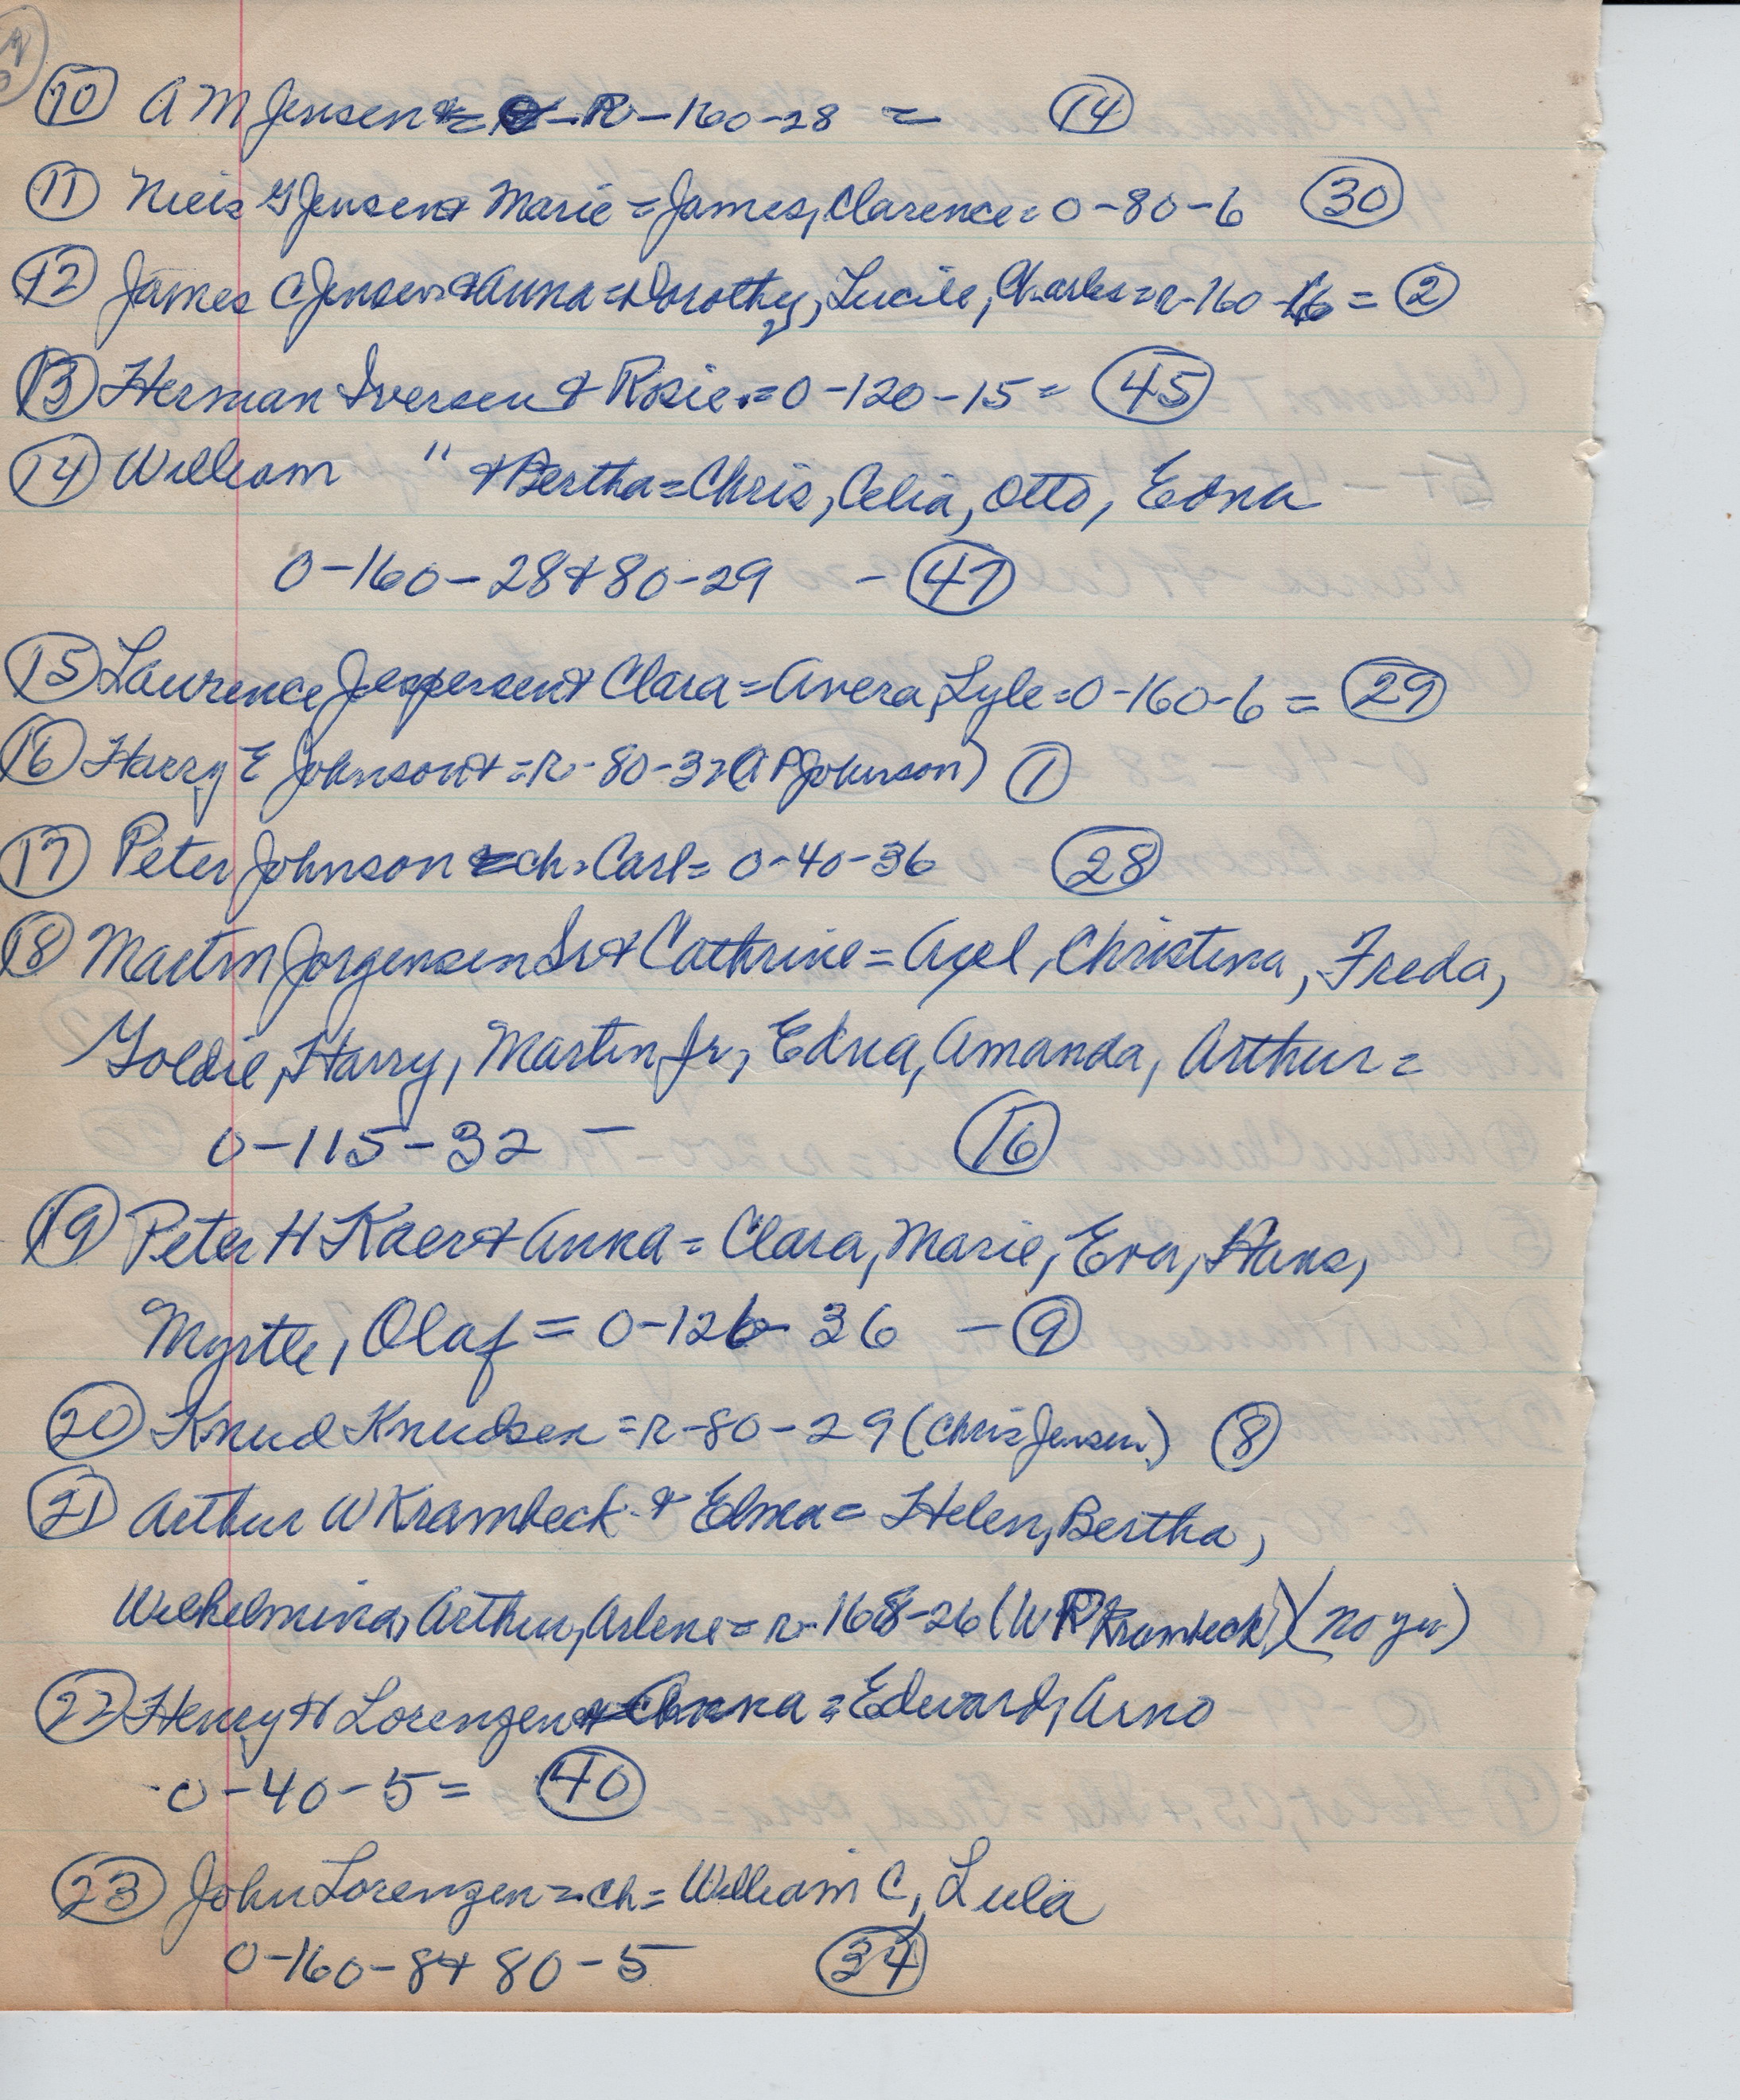 10 A M Jensen = R-160-28 = 14
11 Niels G Jensen & Marie = James, Clarence = 0-80-6 30
12 James C Jensen & Anna = Dorothy, Lucile, Charles = R-160-16 = 2
13 Herman Iversen & Rosie = 0-120-15 = 45
14 William " & Bertha = Chris, Celia, Otto, Edna
0-160-28 & 80-29 - 47
15 Laurence Jespersen & Clara = Avera, Lyle = 0-160-6 = 29
16 Harry E Johnson & = R-80-32 (A P Johnson) 1
17 Peter Johnson = ch = Carl = 0-40-36 28
18 Martin Jorgensen Sr & Cathrine = Axel, Christina, Freda,
Goldie, Harry, Martin Jr, Edna, Amanda, Arthur =
0-115-32 - 16
19 Peter H Kaer & Anna = Clara, Marie, Eva, Hans,
Myrtle, Olaf = 0-126-36 - 9
20 Knud Knudsen = R-80-29 (Chris Jensen) 8
21 Arthur W Krambeck & Elma = Helen, Bertha,
Wilhelmina, Arthur, Arlene = R-168-26 (W P Krambeck) (no yr)
22 Henry H Lorenzen & Anna = Edward, Arno
0-40-5 = 40
23 John Lorenzen = ch = William C, Lula
0-160-8 & 80-5 34